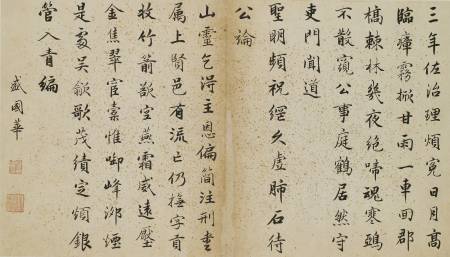 三年佐治理煩寃日月高
臨瘴霧掀甘雨一車回郡
槁棘林幾夜絶啼魂寒鵶
不散窺公事庭鶴居然守
吏門聞道
聖明頻祝網久虛肺石待
公論
山靈乞得主恩偏簡注刑書
属上賢邑有流亡仍撫字貢
收竹箭欲空燕霜威遠壓
金焦翠宦惟啣峰泖煙
是處吴歈歌茂績定煩銀
管入青編
盛國華